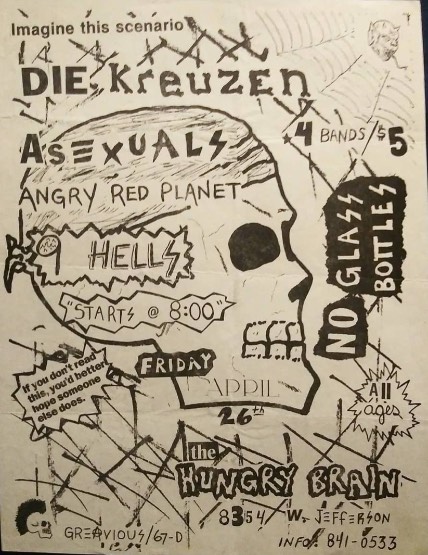 Imagine this scenario
DIE KreuZen
ASEXUALS
4 BANDS/$5
ANGRY RED PLANET
9 HELLS
NO GLASS BOTTLES
"STARTS @ 8:00"
If you don't read
this, you'd better
hope someone
else does.
FRIDAY
APRIL
26th
All
ages
the
HUNGRY BRAIN
8354 W. JEFFERSON
GREAVIOUS/67-D
INFO: 841-0533